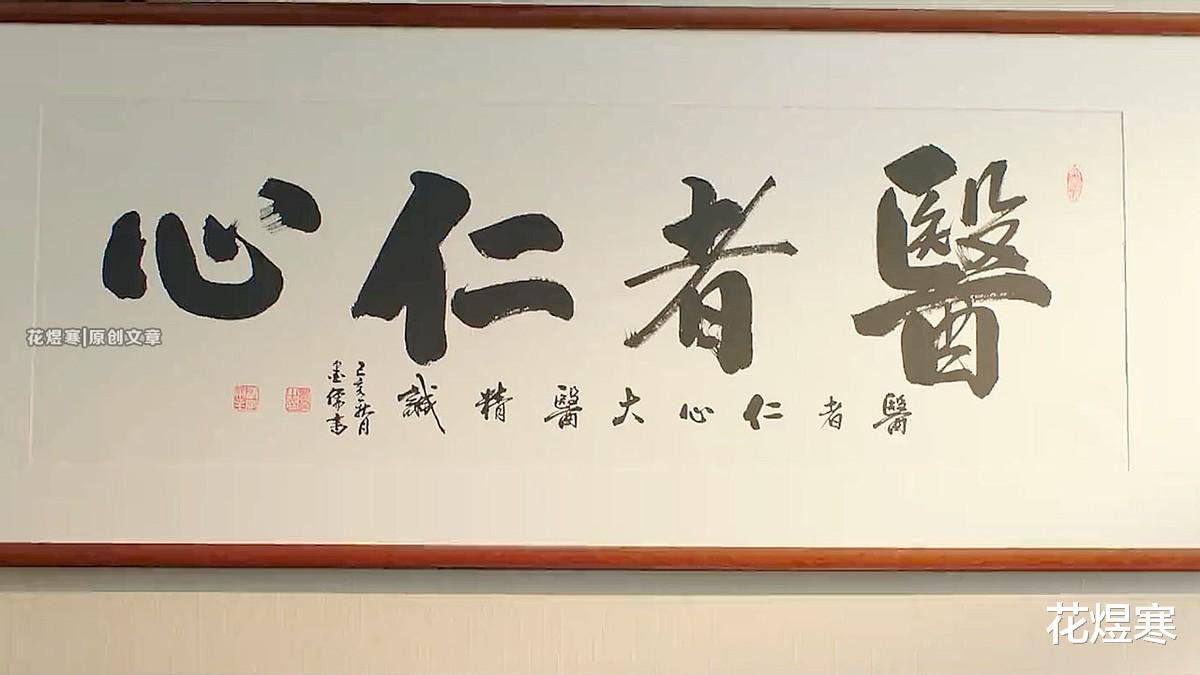 醫者仁心
醫者仁心大醫精誠
己亥秋月
墨儒書
花煜寒|原创文章
花煜寒